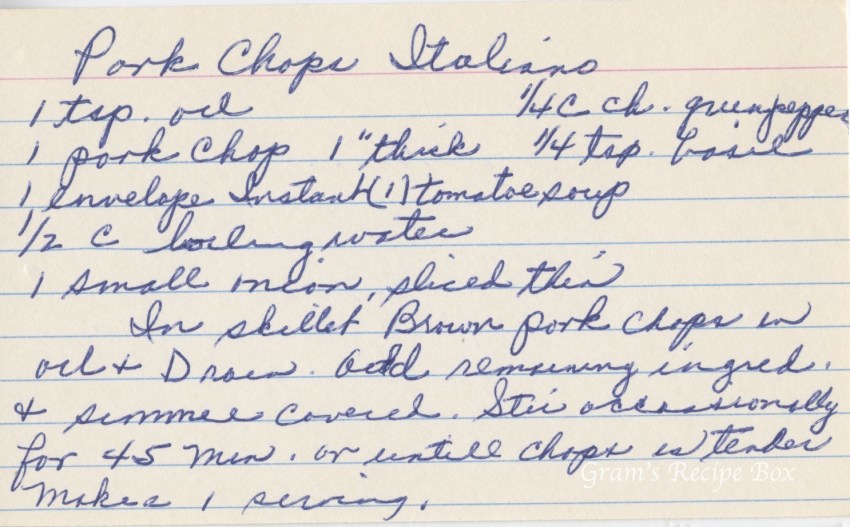 Pork Chops Italiano
1 tsp. oil 1/4 C ch. green pepper
1 pork chop 1" thick 1/4 tsp. basil
1 envelope Instant (1) tomatoe soup
1/2 C boiling water
1 small onion, sliced thin
In skillet Brown pork chops in
oil & Drain. Add remaining ingred.
& simmer covered. Stir occassionally
for 45 min. or untill chops is tender
Makes 1 serving.
Gram's Recipe Box